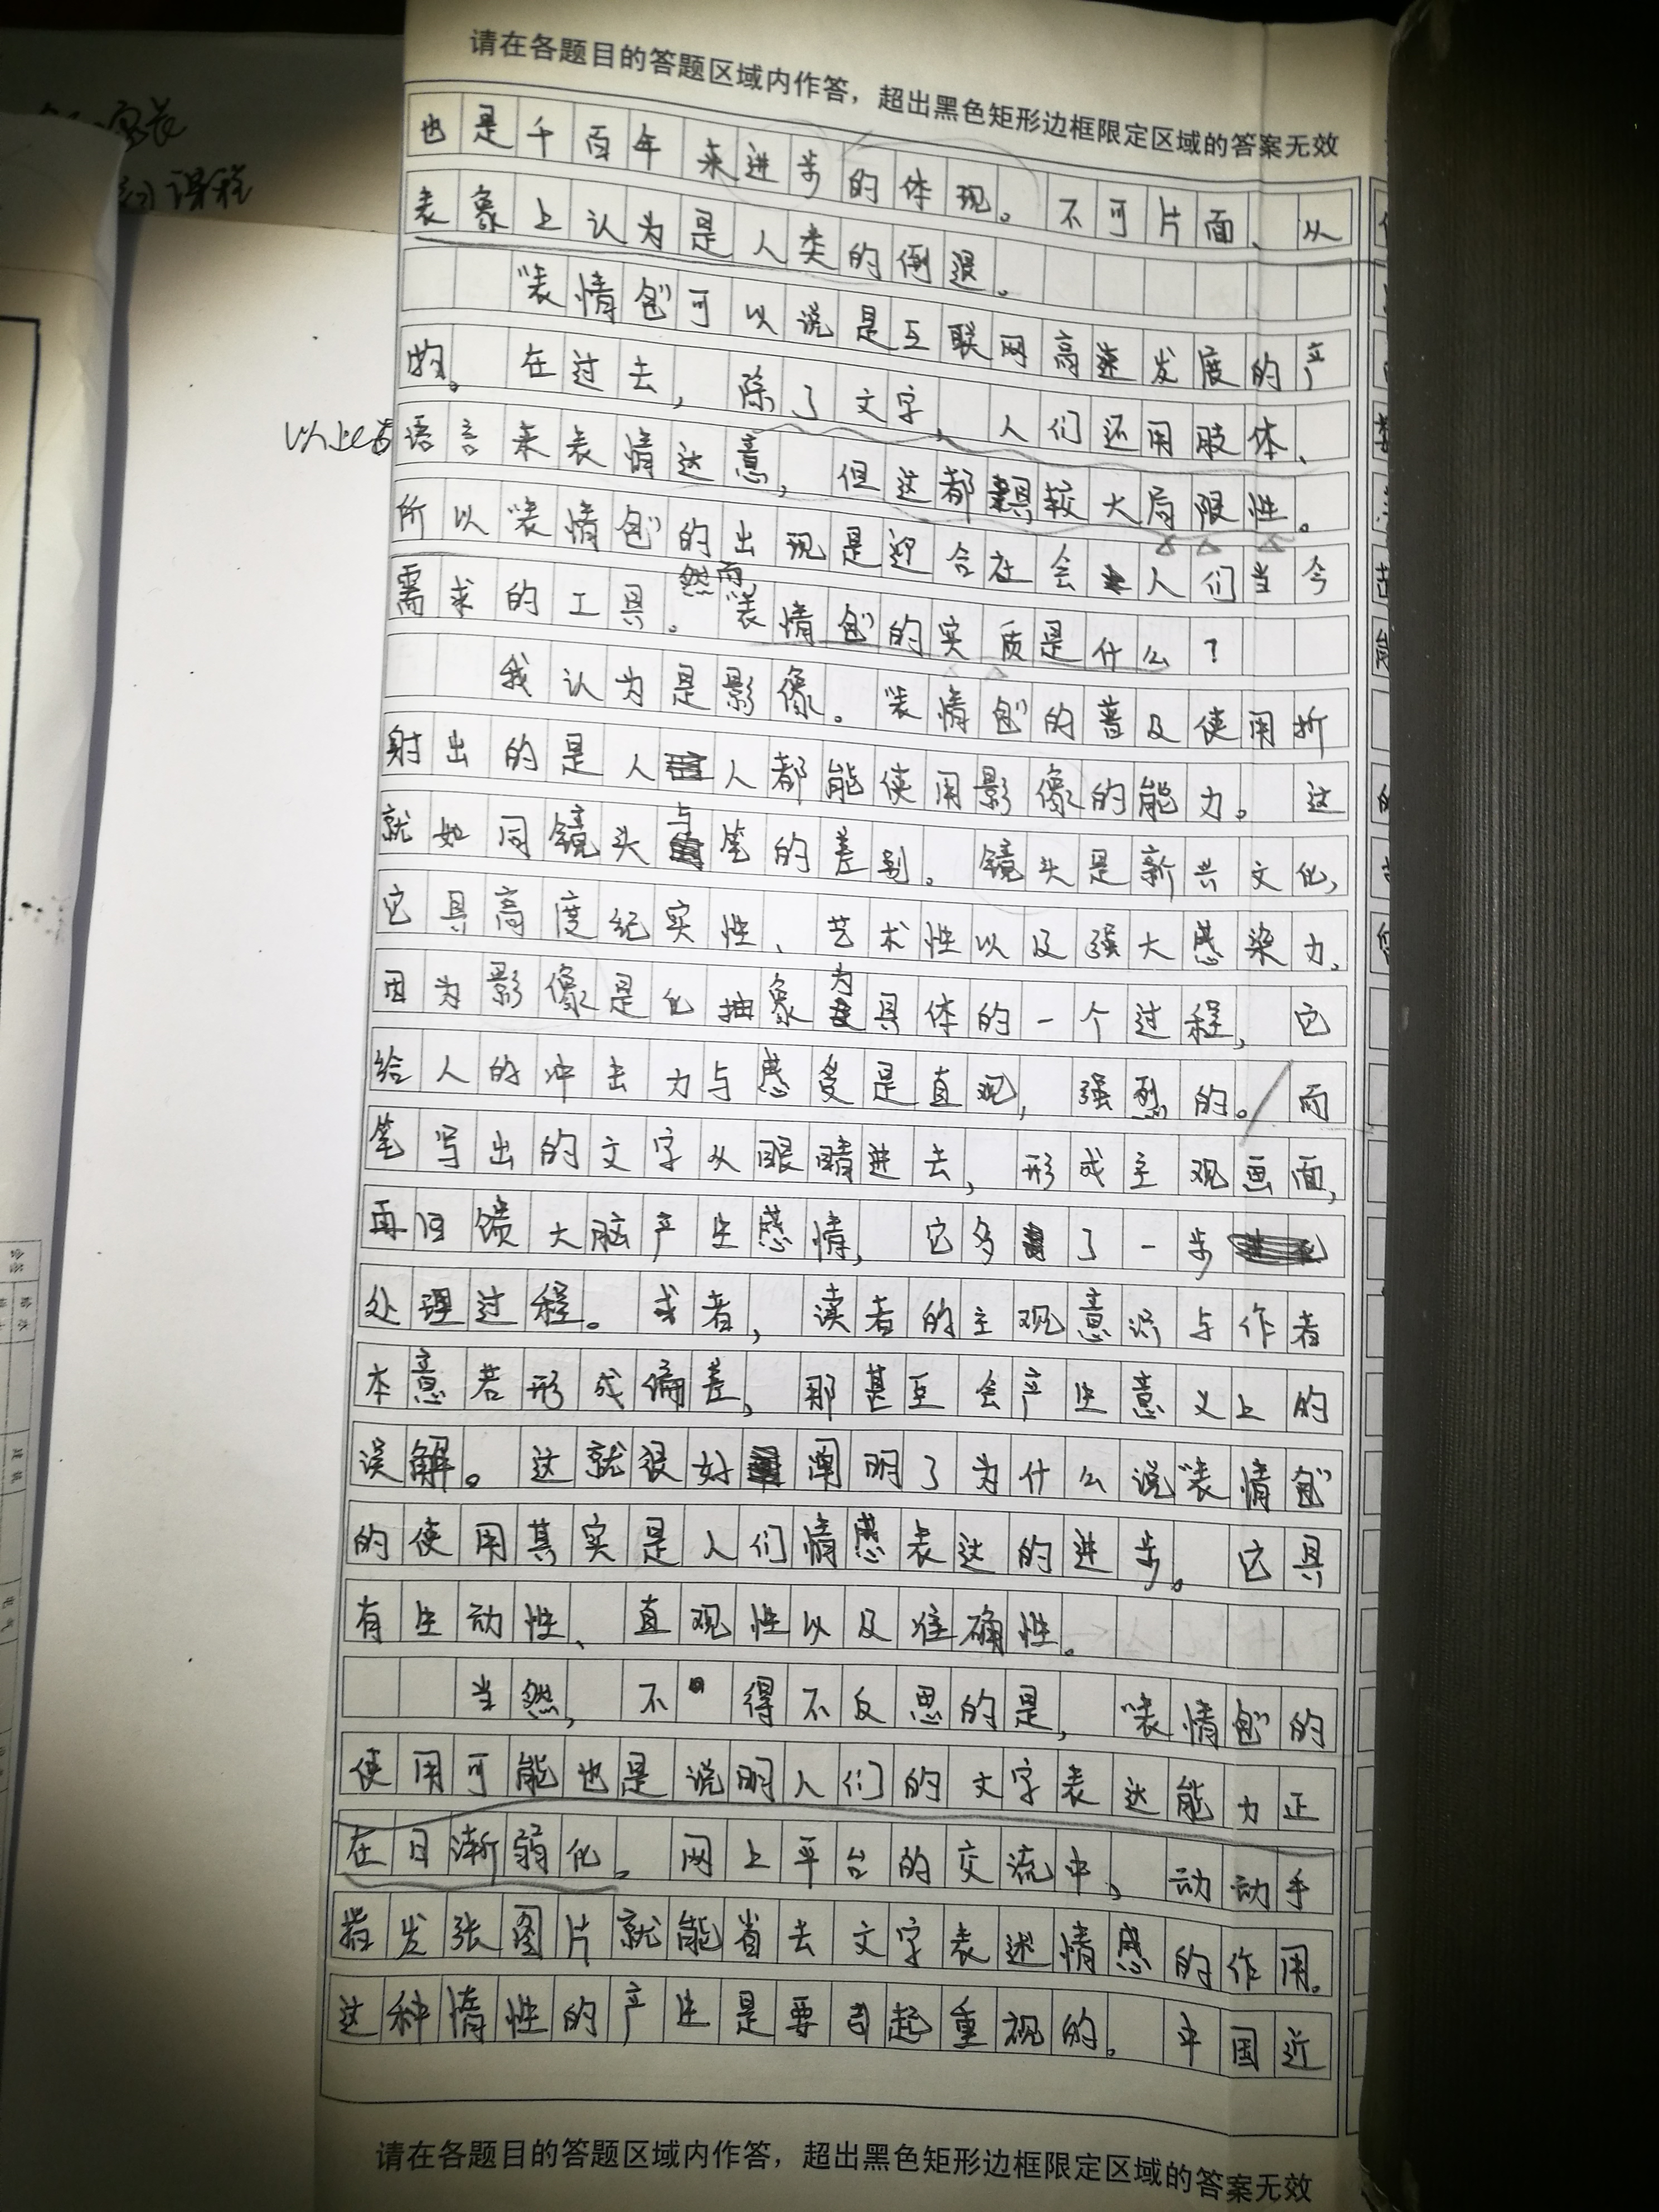 请在各题目的答题区域内作答，超出黑色矩形边框限定区域的答案无效
也是千百年来进步的体现。不可片面、从
表象上认为是人类的倒退。
“表情包”可以说是互联网高速发展的产
物。在过去，除了文字，人们还用肢体、
语言来表情达意，但这都具较大局限性。
所以“表情包”的出现是迎合社会人们当今
需求的工具。然而“表情包”的实质是什么？
我认为是影像。“表情包”的普及使用折
射出的是人人都能使用影像的能力。这
就如同镜头与笔的差别。镜头是新兴文化，
它具高度纪实性、艺术性以及强大感染力，
因为影像是化抽象为具体的一个过程，它
给人的冲击力与感受是直观，强烈的。而
笔写出的文字从眼睛进去，形成主观画面，
再回馈大脑产生感情，它多了一步
处理过程。或者，读者的主观意识与作者
本意若形成偏差，那甚至会产生意义上的
误解。这就很好阐明了为什么说“表情包”
的使用其实是人们情感表达的进步。它具
有生动性、直观性以及准确性。
当然，不得不反思的是，“表情包”的
使用可能也是说明人们的文字表达能力正
在日渐弱化。网上平台的交流中，动动手
指发张图片就能省去文字表述情感的作用。
这种惰性的产生是要引起重视的。中国近
请在各题目的答题区域内作答，超出黑色矩形边框限定区域的答案无效
课程